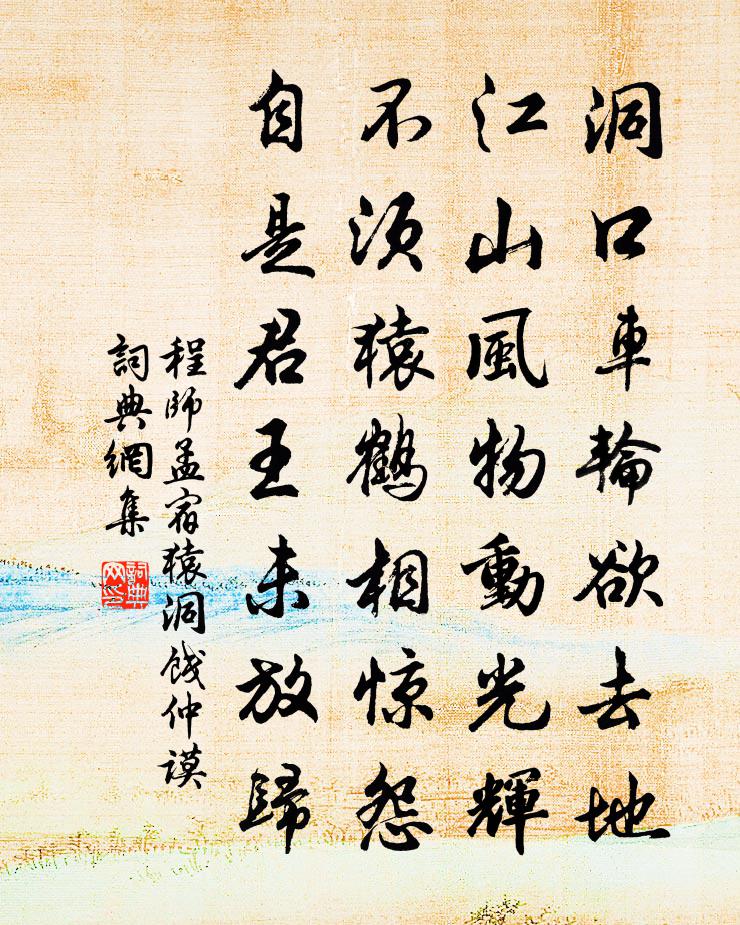 洞口車輪欲去地
江山風物動光輝
不須猿鶴相惊怨
自是君王未放歸
程師孟宿猿洞餞仲謨
詞典網集
詞典网印